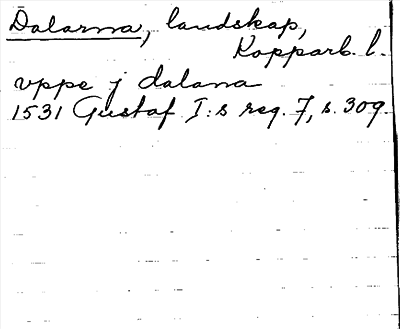 Dalarna, landskap,
Kopparb. l.
vppe j dalana
1531 Gustaf I:s reg. 7, s. 309.